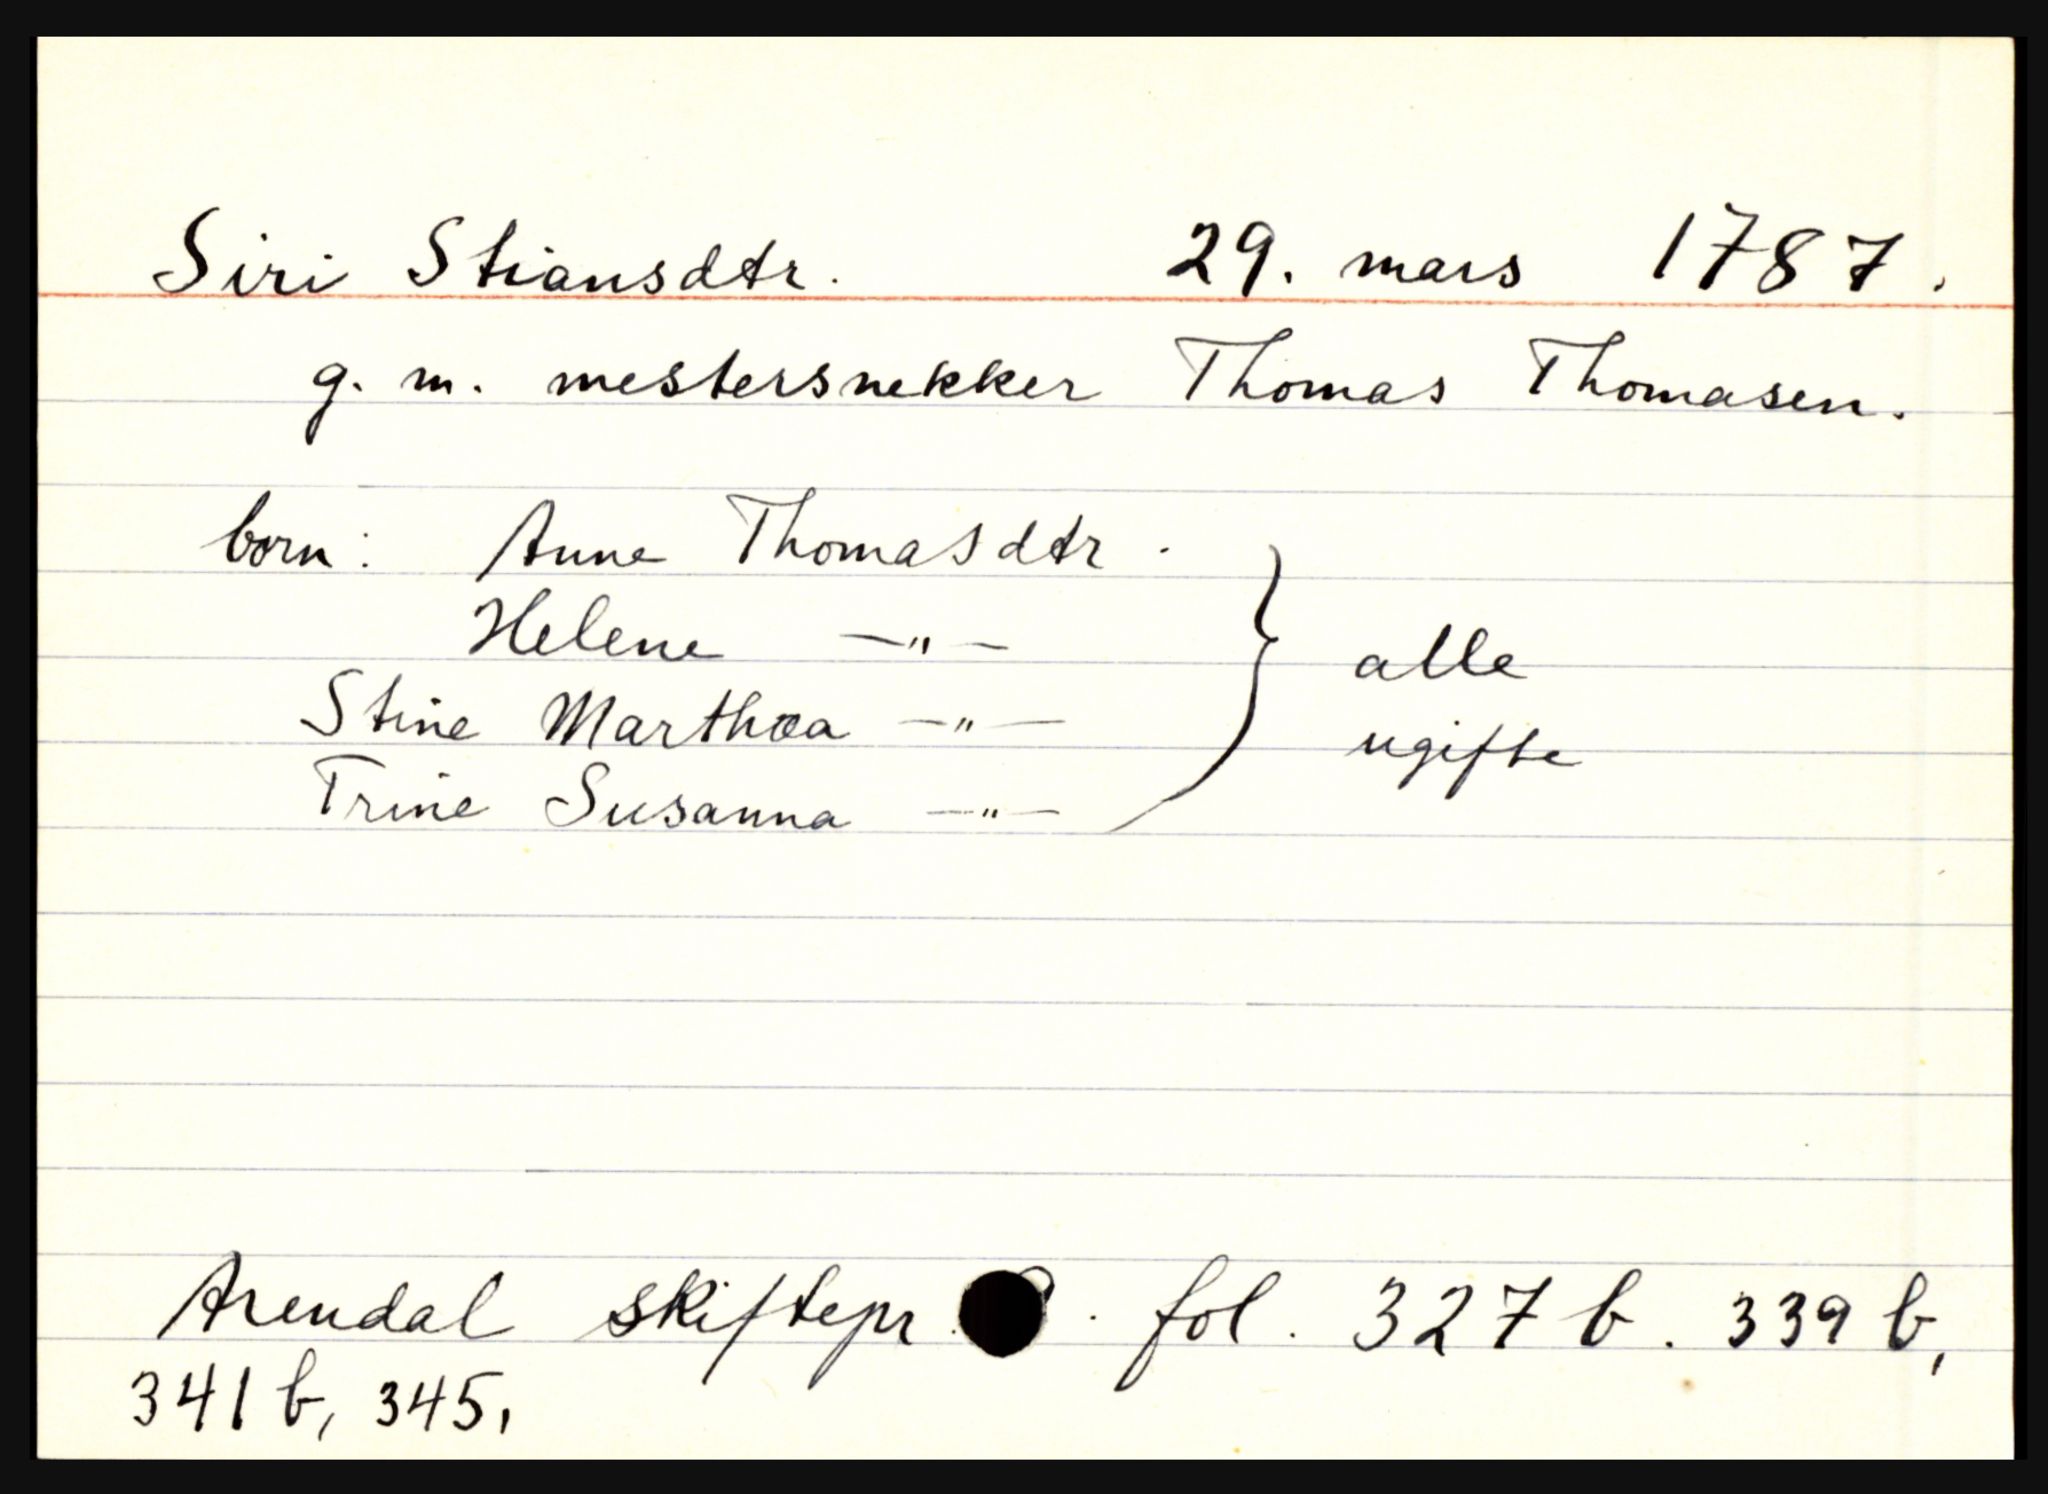 Siri Stiansdtr. 29. mars 1787.
g. m. mestersnekker Thomas Thomasen.
born: Anne Thomasdtr.
Helene —"—
Stine Marthea —"—
Trine Susanna —"—
} alle
ugifte
Arendal skiftepr. fol. 327 b. 339 b,
341 b, 345,